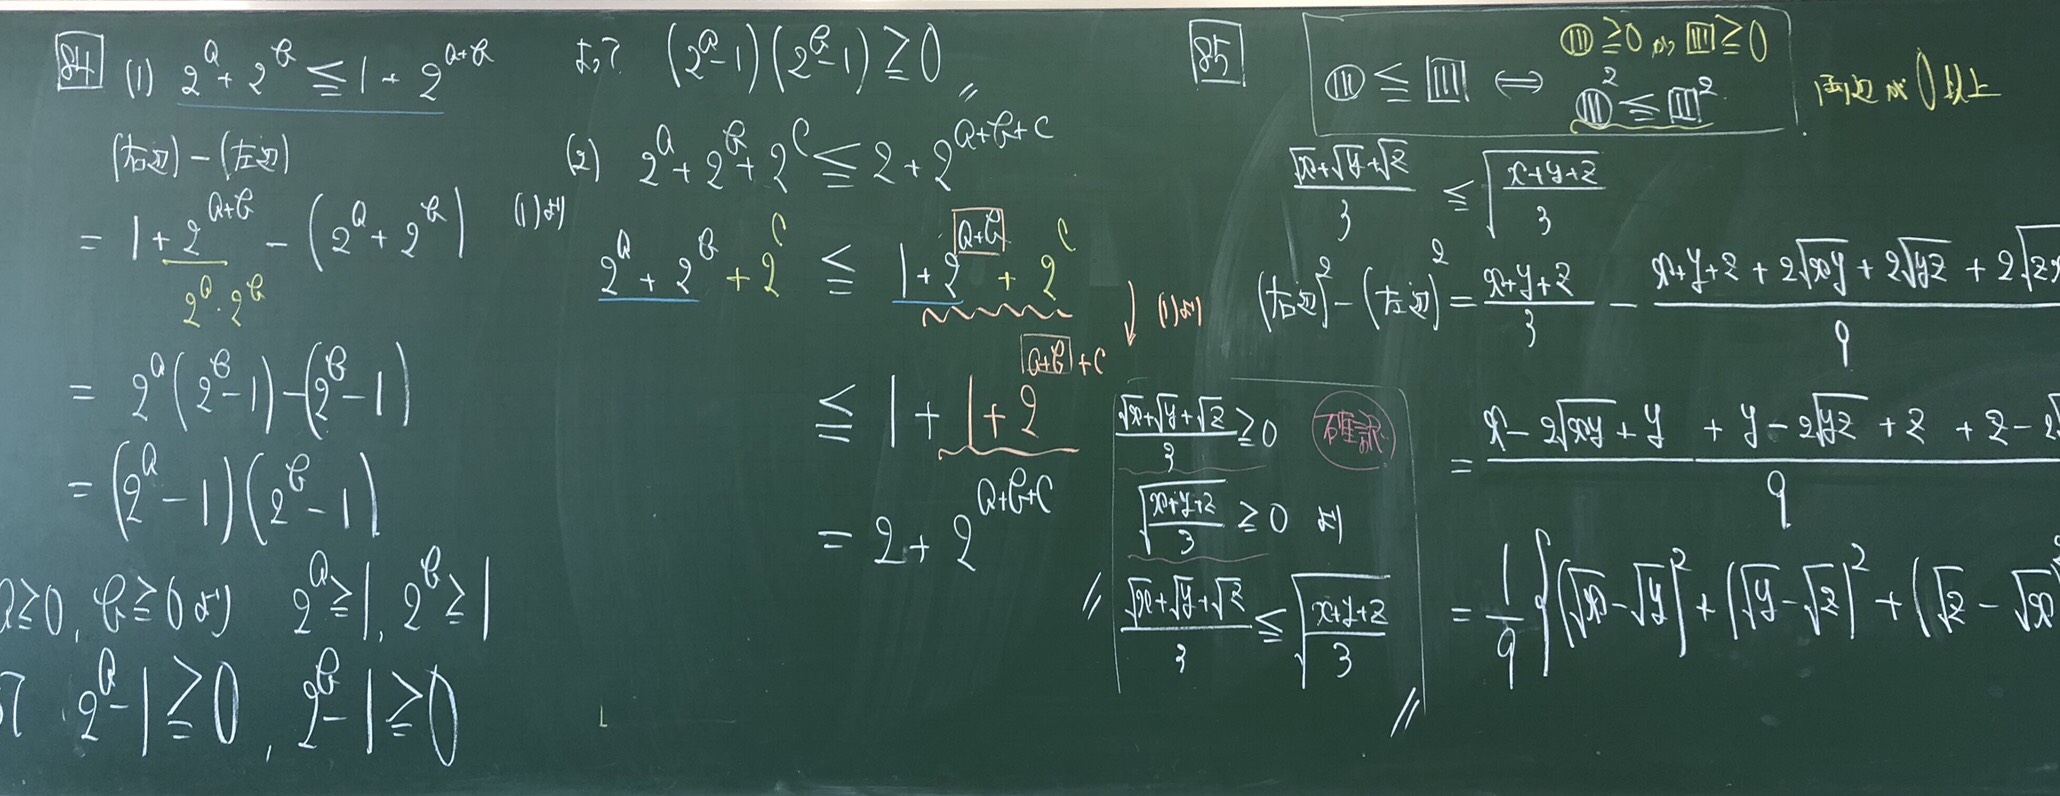 84 (1) 2^a + 2^b ≦ 1 + 2^{a+b}
(右辺) − (左辺)
= 1 + 2^{a+b} − (2^a + 2^b)
2^a・2^b
= 2^a (2^b − 1) − (2^b − 1)
= (2^a − 1)(2^b − 1)
a≧0, b≧0より 2^a≧1, 2^b≧1
2^a − 1 ≧ 0, 2^b − 1 ≧ 0
よって (2^a − 1)(2^b − 1) ≧ 0 〃
(2) 2^a + 2^b + 2^c ≦ 2 + 2^{a+b+c}
(1)より
2^a + 2^b + 2^c ≦ 1 + 2^{a+b} + 2^c
(1)より
≦ 1 + 1 + 2^{a+b+c}
= 2 + 2^{a+b+c}
〃
85
● ≦ ■ ⇔ ●≧0 かつ ■≧0
●² ≦ ■²
両辺が0以上
(√x + √y + √z)/3 ≦ √((x+y+z)/3)
(右辺)² − (左辺)² = (x+y+z)/3 − (x+y+z + 2√xy + 2√yz + 2√zx)/9
= (x − 2√xy + y + y − 2√yz + z + z − 2√)/9
= 1/9 {(√x − √y)² + (√y − √z)² + (√z − √x)²
(√x + √y + √z)/3 ≧ 0 確認
√((x+y+z)/3) ≧ 0 より
(√x + √y + √z)/3 ≦ √((x+y+z)/3)
〃